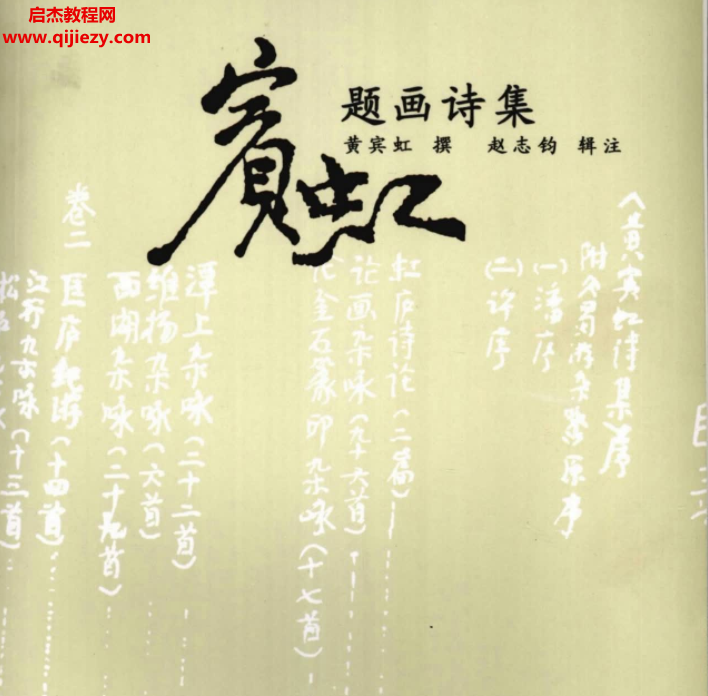 启杰教程网
www.qijiezy.com
賓虹
题画诗集
黄宾虹 撰 赵志钧 辑注
《黄宾虹诗集》序
附入蜀游杂
(一)潘序
(二)许序
虹庐诗论(二篇)
论画杂咏(九十六首)
论金石篆印杂咏(十七首)
潭上杂咏(二十二首)
维扬杂咏(六首)
西湖杂咏(二十九首)
卷二
纪游(十四首)
江行杂咏(十三首)